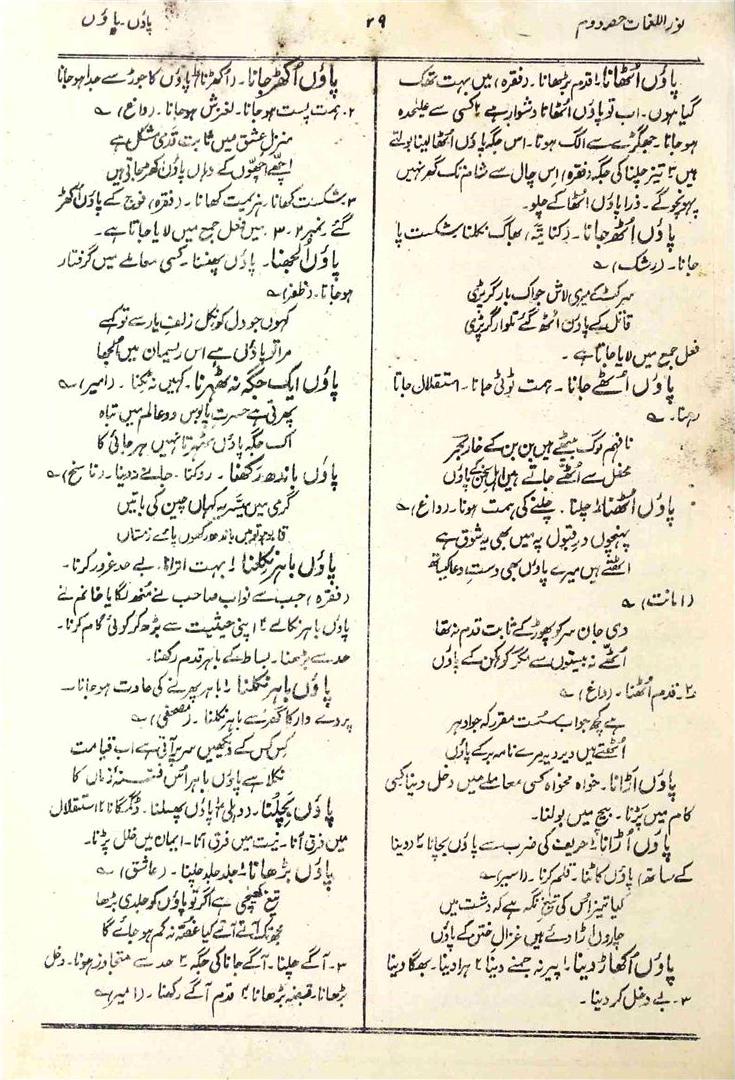 نور اللغات حصہ دوم
۲۹
پاؤں۔ پاؤں
پاؤں اُٹھانا۔ ۱۔ قدم بڑھانا۔ (فقرہ) میں بہت تھک
گیا ہوں۔ اب تو پاؤں اُٹھانا دشوار ہے ۲ کسی سے علیحدہ
ہوجانا۔ جھگڑے سے الگ ہونا۔ اس جگہ پاؤں اُٹھا لینا بولتے
ہیں ۳ تیز چلنا کی جگہ (فقرہ) اِس چال سے شام تک گھر نہیں
پہونچوگے۔ ذرا پاؤں اُٹھا کے چلو۔
پاؤں اُٹھ جانا۔ (کنایۃً) بھاگ نکلنا شکست پا
جانا۔ (رشک) ؎
سر کٹ کے میری لاش جو اک بار گر پڑی
قاتل کے پاؤں اُٹھ گئے تلوار گر پڑی
فعل جمع میں لایا جاتا ہے۔
پاؤں اُٹھے جانا۔ ہمت ٹوٹی جانا۔ استقلال جاتا
رہنا۔ ؎
نافہم لوگ بیٹھے ہیں بن بن کے خار
محفل سے اُٹھے جاتے ہیں اہل سخن کے پاؤں
پاؤں اُٹھنا۔ ۱ چلنا۔ چلنے کی ہمت ہونا۔ (داغ) ؎
پہنچوں در قبول پہ میں بھی یہ شوق ہے
اٹھتے ہیں میرے پاؤں بھی دستِ دعا کیساتھ
(امانت) ؎
دی جان سر کو پھوڑ کے ثابت قدم نہ تھا
اُٹھے نہ بیستوں سے مگر کوہکن کے پاؤں
۲۔ قدم اُٹھنا۔ (داغ) ؎
ہے کچھ جواب سُست مقرر کہ جو ادہر
اُٹھتے ہیں دیر دیر مرے نامہ بر کے پاؤں
پاؤں اَڑانا۔ خواہ مخواہ کسی معاملے میں دخل دینا کسی
کام میں پڑنا۔ بیچ میں بولنا۔
پاؤں اُڑانا۔ ۱ حریف کی ضرب سے پاؤں بچانا ۲ (دینا
کے ساتھ) پاؤں کاٹنا۔ قلم کرنا۔ (اسیر) ؎
کیا تیز اُس کی تیغ نگہ ہے کہ دشت میں
چاروں اڑا دئے ہیں غزالِ ختن کے پاؤں
پاؤں اُکھاڑ دینا۔ ۱ پیر نہ جمنے دینا ۲ ہرا دینا۔ بھگا دینا
۳۔ بے دخل کر دینا۔
پاؤں اُکھڑ جانا۔ (اکھڑنا) ۱ پاؤں کا جوڑ سے جدا ہوجانا
۲۔ ہمت پست ہوجانا۔ لغزش ہوجانا۔ (داغ) ؎
منزل عشق میں ثابت قدمی مشکل ہے
اچھے اچھوں کے وہاں پاؤں اُکھڑ جاتے ہیں
۳۔ شکست کھانا۔ ہزیمت کھانا۔ (فقرہ) فوج کے پاؤں اُکھڑ
گئے۔ نمبر ۲۔ ۳۔ میں فعل جمع میں لایا جاتا ہے۔
پاؤں اُلجھنا۔ پاؤں پھنسنا۔ کسی معاملے میں گرفتار
ہوجانا۔ (ظفر) ؎
کہوں جو دل کو نکل زلفِ یار سے تو کہے
مرا تو پاؤں ہے اس ریسمان میں اُلجھا
پاؤں ایک جگہ نہ ٹھہرنا۔ کہیں نہ ٹکنا۔ (امیر) ؎
پھرتی ہے حسرتِ پابوس دو عالم میں تباہ
اک جگہ پاؤں ٹھہرتا نہیں ہرجائی کا
پاؤں باندھ رکھنا۔ روکنا۔ جانے نہ دینا۔ (ناسخ) ؎
گرمی میں میسر یہ کہاں چین کی باتیں
قابو ہو تو میں باندھ رکھوں پائے زمستاں
پاؤں باہر نکالنا۔ ۱ بہت اترانا۔ بے حد غرور کرنا۔
(فقرہ) جب سے نواب صاحب نے مُنھ لگایا خانم نے
پاؤں باہر نکالے ۲ اپنی حیثیت سے بڑھ کر کوئی کام کرنا۔
حد سے بڑھنا۔ بساط کے باہر قدم رکھنا۔
پاؤں باہر نکلنا۔ ۱ باہر پھرنے کی عادت ہوجانا۔
پردے دار کا گھر سے باہر نکلنا۔ (مصحفی) ؎
کس کس کے دیکھیں سر پہ آتی ہے اب قیامت
نکلا ہے پاؤں باہر اُس فتنۂ زماں کا
پاؤں بچلنا۔ (دہلی) ۱ پاؤں پھسلنا۔ ڈگمگانا ۲ استقلال
میں فرق آنا۔ نیت میں فرق آنا۔ ایمان میں خلل پڑنا۔
پاؤں بڑھانا۔ ۱ جلد جلد چلنا۔ (عاشق) ؎
تیغ کھچی ہے اگر تو پاؤں کو جلدی بڑھا
مجھ تک آتے آتے کیا غصّہ نہ کم ہو جائے گا
۳۔ آگے چلنا۔ آگے جانا کی جگہ ۲ حد سے متجاوز ہونا۔ دخل
بڑھانا۔ قبضہ بڑھانا ۴ قدم آگے رکھنا۔ (امیر) ؎